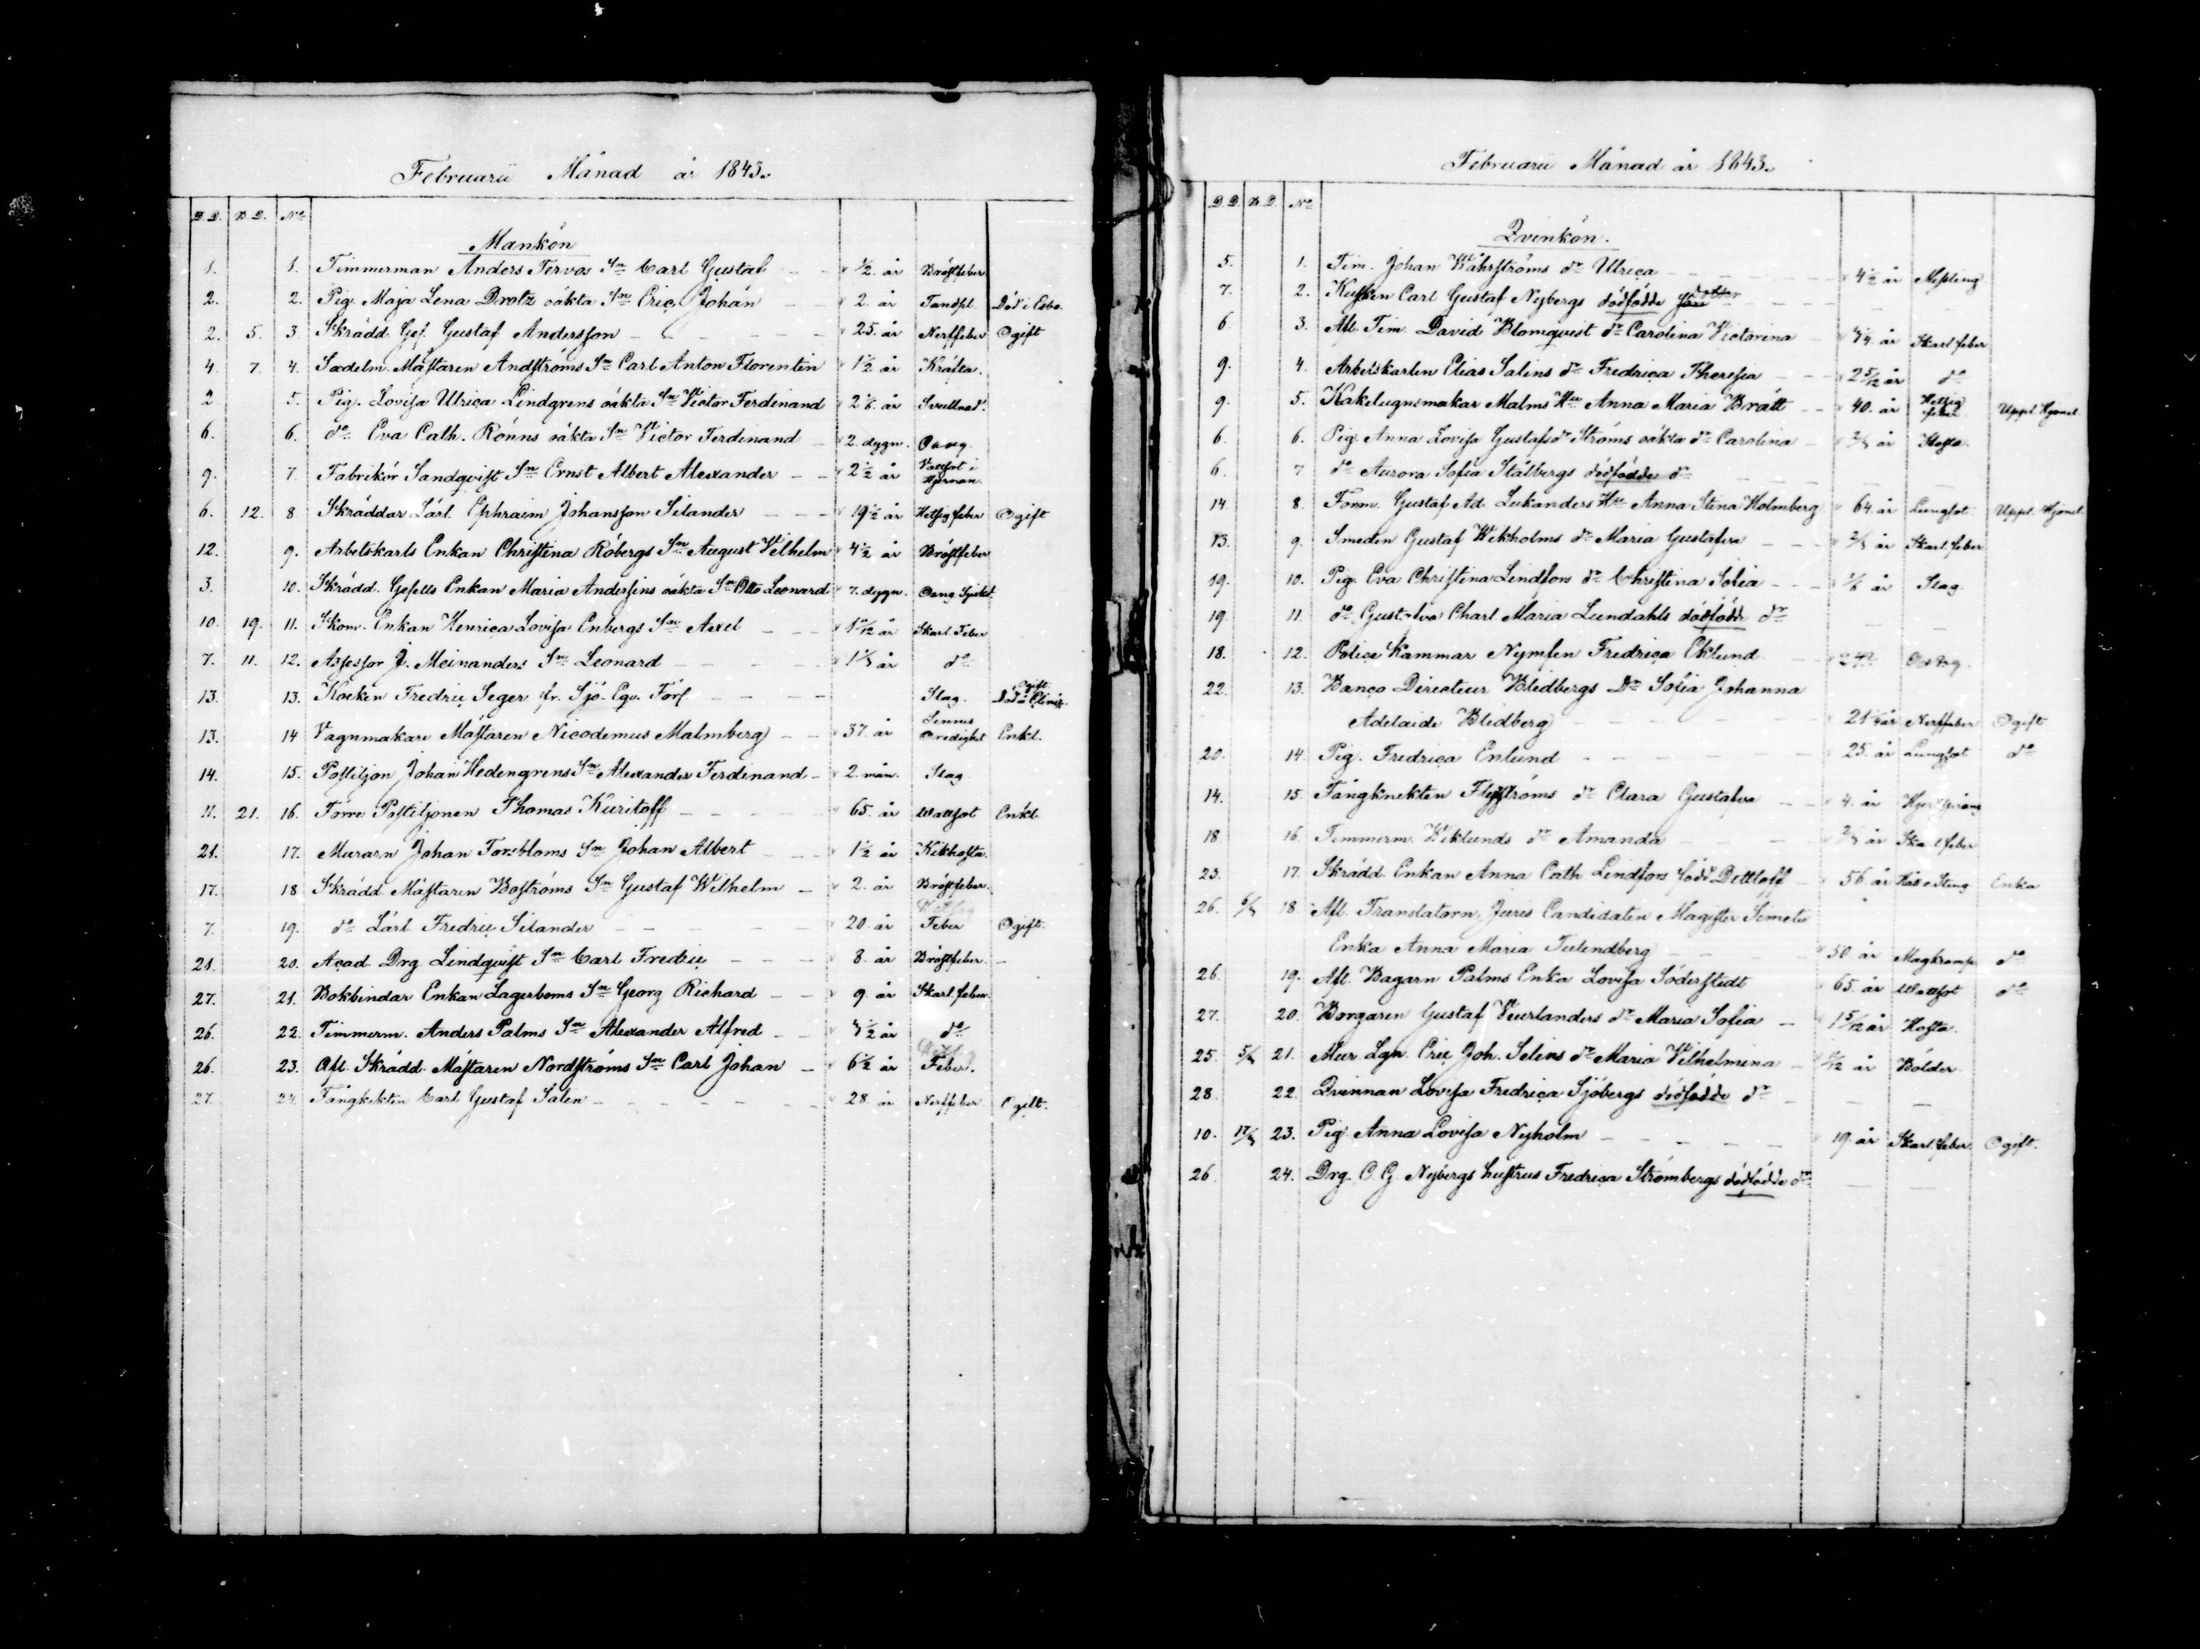 Februarii Månad år 1843.
D.D. B.D. No
Mankön
1. 1. Timmerman Anders Tervos Sn Carl Gustaf ½ år Bröstfeber
2. 2. Pig. Maja Lena Drotz oäkta Sn Eric Johan 2. år Tandspl. Död i Esbo.
2. 5. 3. Skrädd. Ges. Gustaf Andersson 25. år Nerffeber Ogift
4. 7. 4. Sadelm. Mästaren Andströms Sn Carl Anton Florentin 1½ år Kräfta.
2 5. Pig. Lovisa Ulrica Lindgrens oäkta Sn Victor Ferdinand 2 år
6. 6. do Eva Cath. Rönns oäkta Sn Victor Ferdinand 2. dygn. Oang.
9. 7. Fabrikör Sandqvist Sn Ernst Albert Alexander 2½ år Vattsot i Hjernan.
6. 12. 8 Skräddar Lärl. Ephraim Johansson Silander 19½ år Hetsig feber Ogift
12. 9. Arbetskarls Enkan Christina Röbergs Sn August Vilhelm 4½ år Bröstfeber
3. 10. Skrädd. Gesells Enkan Maria Andersins oäkta Sn Otto Leonard 7. dygn. Oang Sjukd.
10. 19. 11. Skom. Enkan Henrica Lovisa Enbergs Sn Axel år Skarl. Feber
7. 11. 12. Assessor J. Meinanders Sn Leonard do
13. 13. Kocken Fredric Seger fr. Sjö-Eqv. Slag. Ogift Död å Clinic.
13. 14 Vagnmakare Mästaren Nicodemus Malmberg 37. år Sinnes Oredighet Enkl.
14. 15. Postiljon Johan Hedengrens Sn Alexander Ferdinand 2. mån. Slag
11. 21. 16. Förre Postiljonen Thomas Kuritoff 65. år Wattsot Enkl.
21. 17. Murarn Johan Forsbloms Sn Johan Albert 1½ år Kikhosta.
17. 18 Skrädd. Mästaren Boströms Sn Gustaf Wilhelm 2. år Bröstfeber.
7. 19. do Lärl. Fredric Silander 20. år Hetsig Feber Ogift.
21. 20. Acad. Drg Lindqvist Sn Carl Fredric 8. år Bröstfeber.
27. 21. Bokbindar Enkan Lagerboms Sn Georg Richard 9. år Skarl. feber
26. 22. Timmerm. Anders Palms Sn Alexander Alfred år do
26. 23. Afl. Skrädd. Mästaren Nordströms Sn Carl Johan 6½ år Feber.
27. 24. Fångknekten Carl Gustaf Salen 28. år Nerffeber Ogift.
Februarii Månad år 1843.
D.D. B.D. No
Qvinkön.
5. 1. Tim. Johan Wåhrströms dr Ulrica 4½ år Messling
7. 2. Kusken Carl Gustaf Nybergs dödfödde dotter
6 3. Afl. Tim. David Blomqvist dr Carolina Victorina år Skarl. feber
9. 4. Arbetskarlen Elias Salins dr Fredrica Theresia 2 5/12 år do
9. 5. Kakelugnsmakar Malms Hu Anna Maria Bratt 40. år Hetsig feber
6. 6. Pig. Anna Lovisa Gustafsdr Ströms oäkta dr Carolina år Hosta.
6. 7 do Aurora Sofia Stålbergs dödfödde dr
14. 8. Form. Gustaf Ad. Lukanders Hu Anna Stina Holmberg 64. år Lungsot
13. 9. Smeden Gustaf Wekholms dr Maria Gustafva år Skarl. feber
19. 10. Pig. Eva Christina Lindfors dr Christina Sofia år Slag.
19. 11. do Gustafva Charl. Maria Lundahls dödfödde dr
18. 12. Police Kammar Nymfen Fredrica Eklund
22. 13. Banco Directeur Blidbergs Dr Sofia Johanna
Adelaide Blidberg 21 år Nerffeber Ogift
20. 14. Pig. Fredrica Enlund 25. år Lungsot do
14. 15. Fångknekten Flygströms dr Clara Gustafva 4. år
18 16 Timmerm. Wiklunds dr Amanda år Skarl. feber
23. 17. Skrädd. Enkan Anna Cath. Lindfors född Dittloff 56. år Håll o Sting Enka
26. 18. Afl. Translatorn, Juris Candidaten Magister
Enka Anna Maria Tulindberg 50 år Magkramp do
26. 19. Afl. Bagarn Palms Enka Lovisa Söderstedt 65. år Wattsot do
27. 20. Borgaren Gustaf Veurlanders dr Maria Sofia 1 5/12 år Hosta.
25. 21. Mur. Lgn. Eric Joh. Selins dr Maria Vilhelmina år Bölder
28. 22. Qvinnan Lovisa Fredrica Sjöbergs dödfödde dr
10. 23. Pig. Anna Lovisa Nyholm 19. år Skarl. feber Ogift.
26 24. Drg. C. G. Nybergs hustrus Fredrica Strömbergs dödfödde dr